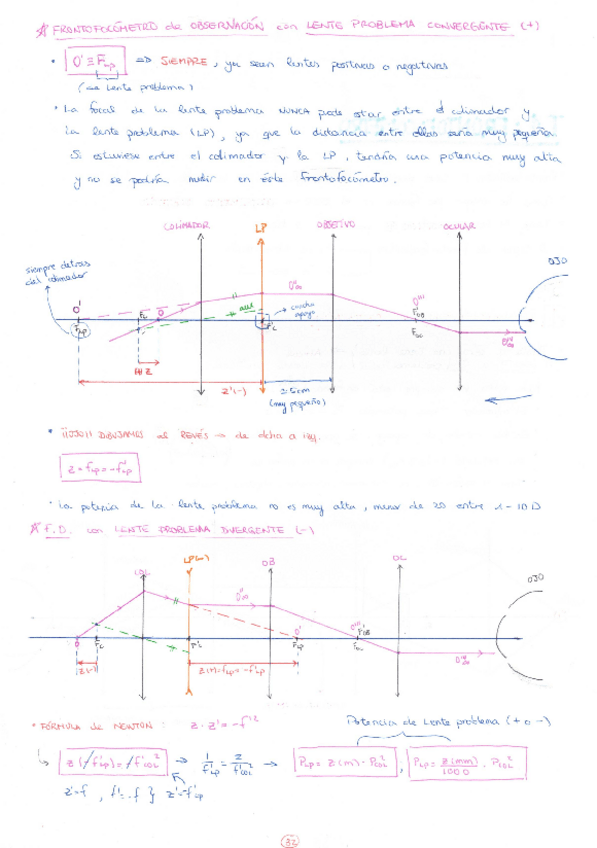 * FRONTOFOCÓMETRO de OBSERVACIÓN con LENTE PROBLEMA CONVERGENTE (+)
• O' ≡ FLP ⇒ SIEMPRE, ya sean lentes positivas o negativas
(↔ Lente problema)
• La focal de la lente problema NUNCA puede estar entre el colimador y
la lente problema (LP), ya que la distancia entre ellas sería muy pequeña
Si estuviese entre el colimador y la LP, tendría una potencia muy alta
y no se podría medir en éste frontofocómetro.
COLIMADOR LP OBJETIVO OCULAR
OJO
siempre detrás
del colimador
O' FL O O''∞ O'''
aux
FLP F'L F'OB
FOC O'''∞
(+) Z
z'(-) ≃5cm
(muy pequeño)
• ¡¡OJO!! DIBUJAMOS al REVÉS → de dcha a izq.
z = fLP = -f'LP
• La potencia de la lente problema no es muy alta, menor de 20 entre 1-10 D
* F.O. con LENTE PROBLEMA DIVERGENTE (-)
COL LP(-) OB OC
OJO
O''∞
O FL F'L O' FLP O''' F'OB FOC
z(-) z(+)=fLP=-f'LP O'''∞
• FÓRMULA de NEWTON: z·z' = -f'²
Potencia de Lente problema (+ o -)
z(-f'LP) = -f'COL² → 1/f'LP = z/f'COL² → PLP = z(m)·PCOL², PLP = z(mm)/1000 · PCOL²
z'=f, f'=-f } z'=-f'LP
32